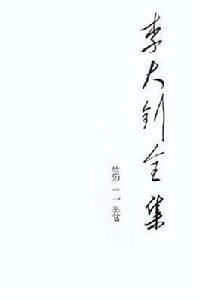 李大钊全集
第二卷